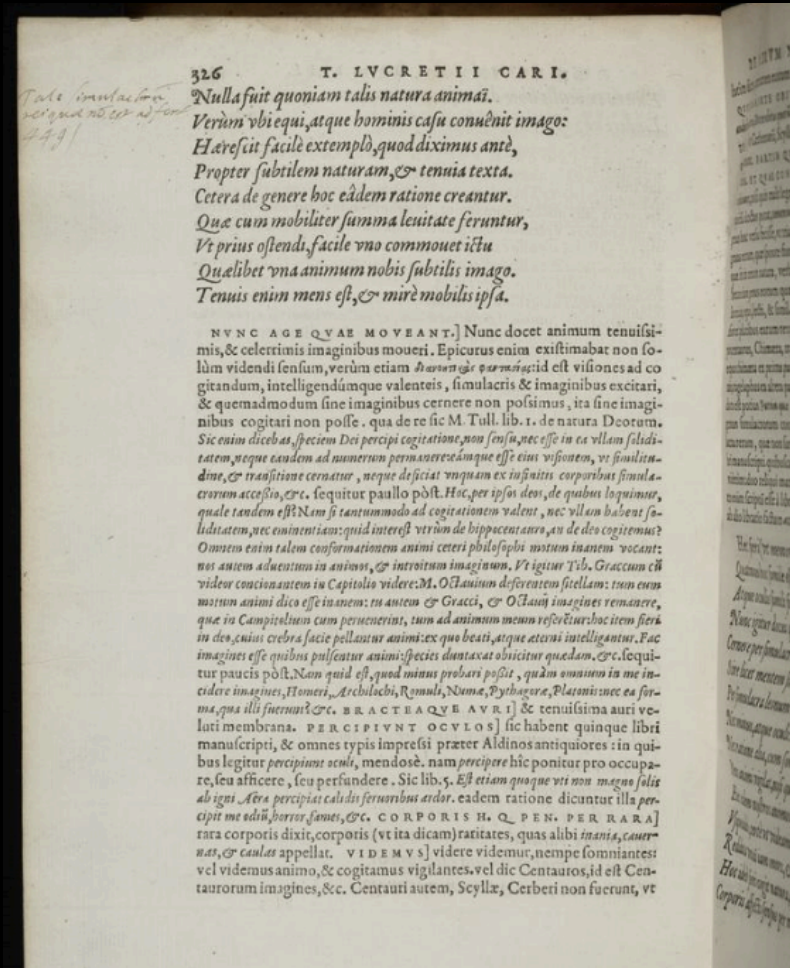 326 T. LVCRETII CARI.
Nulla fuit quoniam talis natura animaï.
Verùm vbi equi, atque hominis casu conuênit imago:
Hærescit facilè extemplò, quod diximus antè,
Propter subtilem naturam, & tenuia texta.
Cetera de genere hoc eâdem ratione creantur.
Quæ cum mobiliter summa leuitate feruntur,
Vt prius ostendi, facile vno commouet ictu
Quælibet vna animum nobis subtilis imago.
Tenuis enim mens est, & mirè mobilis ipsa.
NVNC AGE QVAE MOVEANT.] Nunc docet animum tenuissi-
mis, & celerrimis imaginibus moueri. Epicurus enim existimabat non so-
lùm videndi sensum, verùm etiam διανοητικὰς φαντασίας: id est visiones ad co
gitandum, intelligendúmque valenteis, simulacris & imaginibus excitari,
& quemadmodum sine imaginibus cernere non possimus, ita sine imagi-
nibus cogitari non posse. qua de re sic M. Tull. lib. 1. de natura Deorum.
Sic enim dicebas, speciem Dei percipi cogitatione, non sensu, nec esse in ea vllam solidi-
tatem, neque eandem ad numerum permanere: eámque esse eius visionem, vt similitu-
dine, & transitione cernatur, neque deficiat vnquam ex infinitis corporibus simula-
crorum accessio, &c. sequitur paullo pòst. Hoc, per ipsos deos, de quibus loquimur,
quale tandem est? Nam si tantummodo ad cogitationem valent, nec vllam habent so-
liditatem, nec eminentiam: quid interest vtrùm de hippocentauro, an de deo cogitemus?
Omnem enim talem conformationem animi ceteri philosophi motum inanem vocant:
nos autem aduentum in animos, & introitum imaginum. Vt igitur Tib. Graccum cũ
videor concionantem in Capitolio videre: M. Octauium deferentem sitellam: tum eum
motum animi dico esse inanem: tu autem & Gracci, & Octauij imagines remanere,
quæ in Campitolium cum peruenerint, tum ad animum meum referẽtur: hoc item fieri
in deo, cuius crebra facie pellantur animi: ex quo beati, atque æterni intelligantur. Fac
imagines esse quibus pulsentur animi: species duntaxat obiicitur quædam. &c. sequi-
tur paucis pòst. Nam quid est, quod minus probari possit, quàm omnium in me in-
cidere imagines, Homeri, Archilochi, Romuli, Numæ, Pythagoræ, Platonis: nec ea for-
ma, qua illi fuerunt? &c. BRACTEAQVE AVRI] & tenuissima auri ve-
luti membrana. PERCIPIVNT OCVLOS] sic habent quinque libri
manuscripti, & omnes typis impressi præter Aldinos antiquiores: in qui-
bus legitur percipiunt oculi, mendosè. nam percipere hîc ponitur pro occupa-
re, seu afficere, seu perfundere. Sic lib. 5. Est etiam quoque vti non magno solis
ab igni Aëra percipiat calidis feruoribus ardor. eadem ratione dicuntur illa per-
cipit me odiũ, horror, fames, &c. CORPORIS H. Q. PEN. PER RARA]
rara corporis dixit, corporis (vt ita dicam) raritates, quas alibi inania, cauer-
nas, & caulas appellat. VIDEMVS] videre videmur, nempe somniantes:
vel videmus animo, & cogitamus vigilantes. vel dic Centauros, id est Cen-
taurorum imagines, &c. Centauri autem, Scyllæ, Cerberi non fuerunt, vt